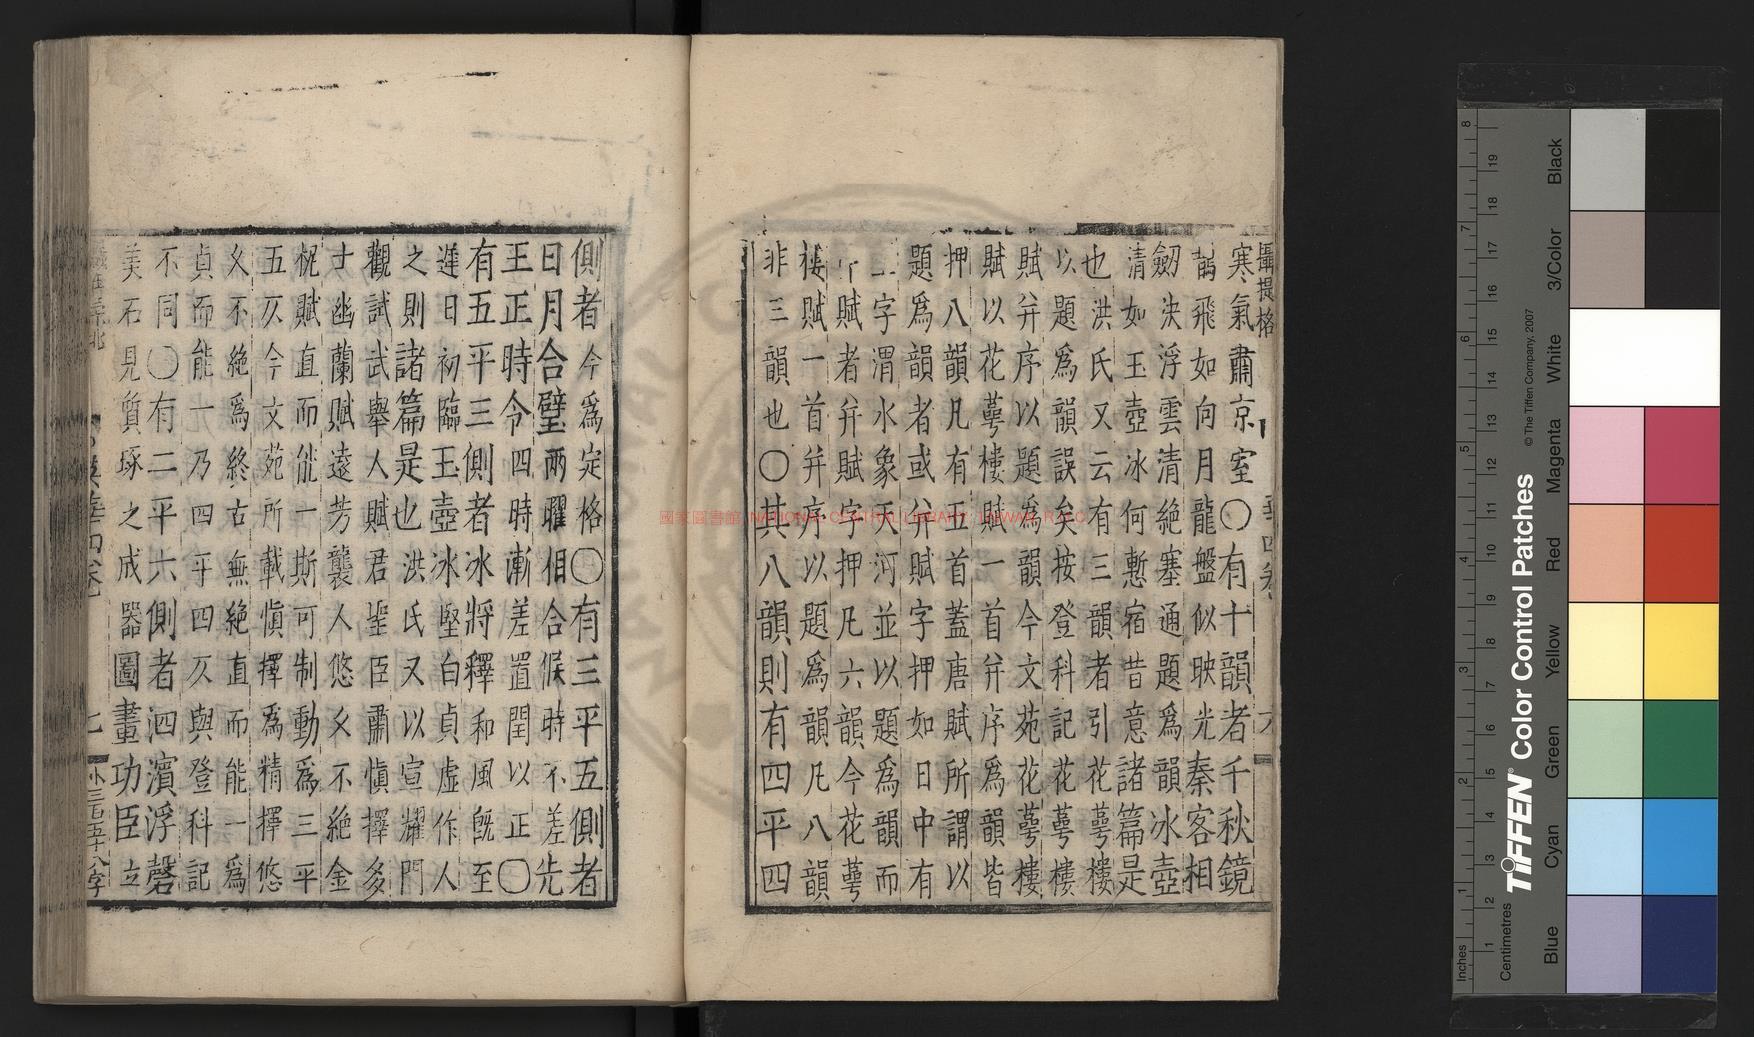 攝提格
寒氣肅京室〇有十韻者千秋鏡
鵲飛如向月龍盤似映光秦客相
劒決浮雲清絶塞通題爲韻冰壺
清如玉壺冰何慙宿昔意諸篇是
也洪氏又云有三韻者引花萼樓
以題爲韻誤矣按登科記花萼樓
賦并序以題爲韻今文苑花萼樓
賦以花萼樓賦一首并序爲韻皆
押八韻凡有五首蓋唐賦所謂以
題爲韻者或并賦字押如日中有
字渭水象天河並以題爲韻而
賦者并賦字押凡六韻今花萼
樓賦一首并序以題爲韻凡八韻
非三韻也〇其八韻則有四平四
側者今爲定格〇有三平五側者
日月合璧兩曜相合候時不差先
王正時令四時漸差置閏以正〇
有五平三側者冰將釋和風旣至
遲日初臨玉壺冰堅白貞虛作人
之則諸篇是也洪氏又以宣耀門
觀試武舉人賦君聖臣肅愼擇多
士幽蘭賦遠芳襲人悠久不絶金
柅賦直而能一斯可制動爲三平
五仄今文苑所載愼擇爲精擇悠
久不絶爲終古無絶直而能一爲
貞而能一乃四平四仄與登科記
不同〇有二平六側者泗濱浮磬
美石見質琢之成器圖畫功臣立
七
國家圖書館 NATIONAL CENTRAL LIBRARY, TAIWAN, R.O.C.
Inches
Centimetres
TIFFEN Color Control Patches
© The Tiffen Company, 2007
Blue
Cyan
Green
Yellow
Red
Magenta
White
3/Color
Black